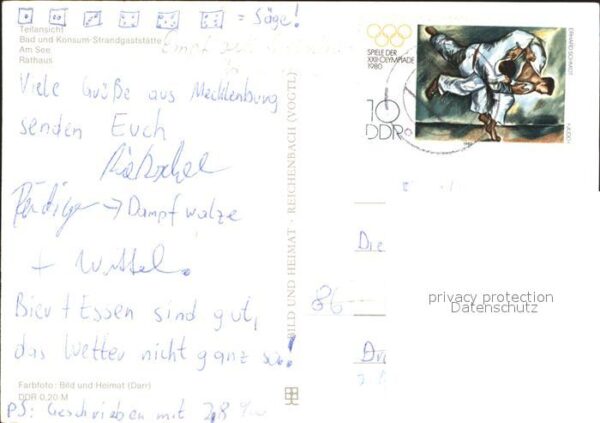 = Säge!
Teilansicht
Bad und Konsum-Strandgaststätte
Am See
Rathaus
Viele Grüße aus Mecklenburg
senden Euch
Rüdiger → Dampfwalze
+
Bier + Essen sind gut,
das Wetter nicht ganz so!
Farbfoto: Bild und Heimat (Darr)
DDR 0,20 M
PS: Geschrieben mit 2,8
BILD UND HEIMAT · REICHENBACH (VOGTL)
SPIELE DER
XXII. OLYMPIADE
1980
10
DDR
ERHARD SCHMIDT
Die
86
privacy protection
Datenschutz